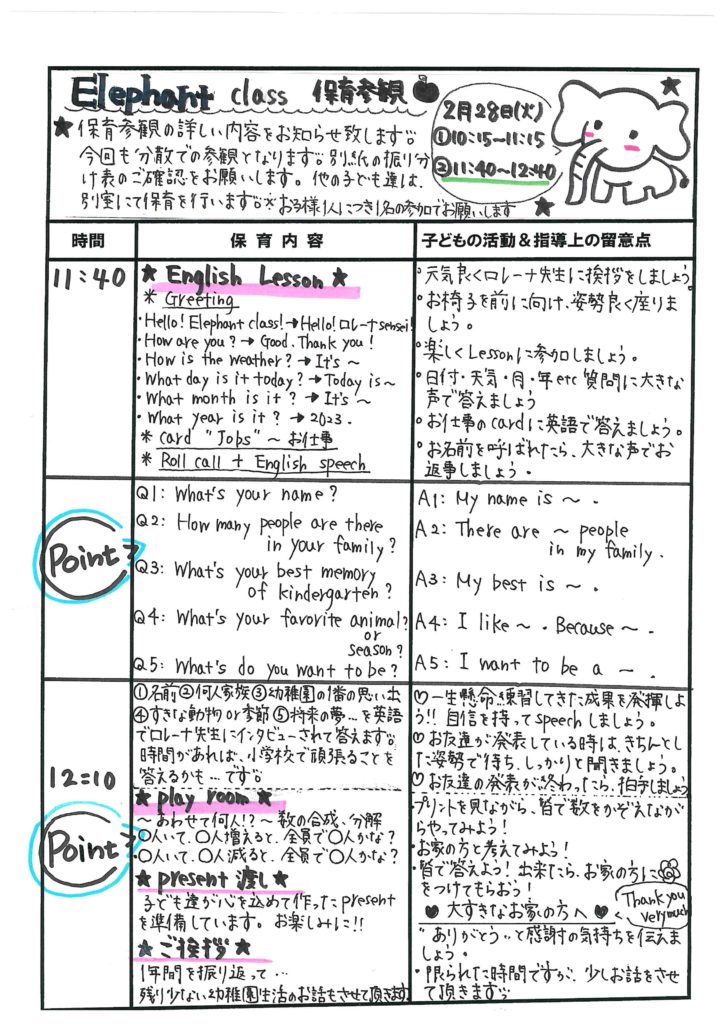 Elephant class 保育参観
★保育参観の詳しい内容をお知らせ致します。
今回も分散での参観となります。別紙の振り分
け表のご確認をお願いします。他の子ども達は、
別室にて保育を行います。※お子様1人につき1名の参加でお願いします
2月28日(火)
①10:15~11:15
②11:40~12:40
時間
保育内容
子どもの活動&指導上の留意点
11:40
★ English Lesson ★
* Greeting
・Hello! Elephant class! → Hello! ロレーナsensei!
・How are you? → Good. Thank you!
・How is the weather? → It's ~
・What day is it today? → Today is ~
・What month is it? → It's ~
・What year is it? → 2023.
* card "Jobs" ~ お仕事
* Roll call + English speech
・元気良くロレーナ先生に挨拶をしましょう。
・お椅子を前に向け、姿勢良く座りま
しょう。
・楽しくLessonに参加しましょう。
・日付・天気・月・年etc質問に大きな
声で答えましょう
・お仕事のcardに英語で答えましょう。
・お名前を呼ばれたら、大きな声でお
返事しましょう。
Point?
Q1: What's your name?
Q2: How many people are there
in your family?
Q3: What's your best memory
of kindergarten?
Q4: What's your favorite animal?
or
season?
Q5: What's do you want to be?
A1: My name is ~.
A2: There are ~ people
in my family.
A3: My best is ~.
A4: I like ~. Because ~.
A5: I want to be a ~.
①名前②何人家族③幼稚園の1番の思い出
④すきな動物or季節⑤将来の夢…を英語
でロレーナ先生にインタビューされて答えます。
時間があれば、小学校で頑張ることを
答えるかも…です。
♡一生懸命練習してきた成果を発揮しよ
う!!自信を持ってspeechしましょう。
♡お友達が発表している時は、きちんとし
た姿勢で待ち、しっかりと聞きましょう。
♡お友達の発表が終わったら、拍手しましょう
12:10
Point?
★ play room ★
~あわせて何人!?~数の合成、分解
・〇人いて、〇人増えると、全員で〇人かな?
・〇人いて、〇人減ると、全員で〇人かな?
★ present 渡し ★
子ども達が心を込めて作ったpresent
を準備しています。お楽しみに!!
★ ご挨拶 ★
1年間を振り返って…
残り少ない幼稚園生活のお話もさせて頂きます。
・プリントを見ながら、皆で数をかぞえなが
らやってみよう!
・お家の方と考えてみよう!
・皆で答えよう!出来たら、お家の方に
をつけてもらおう!
♥ 大すきなお家の方へ ♥
Thank you
very much
"ありがとう"と感謝の気持ちを伝えま
しょう。
・限られた時間ですが、少しお話をさせ
て頂きます。